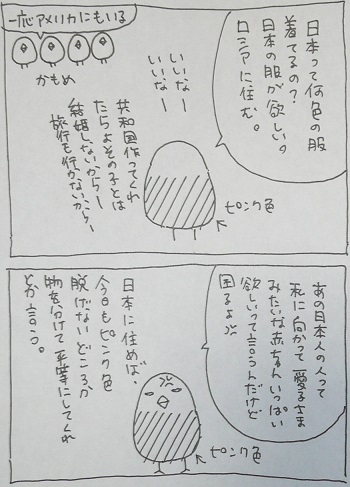 日本って何色の服
着てるの？
日本の服が欲しい。
ロシアに住む。
いいなー
いいなー
一応アメリカにもいる
かもめ
共和国作ってくれ
たらよその子とは
結婚しないからー
旅行も行かないからー
ピンク色
あの日本人の人って
私に向かって愛子さま
みたいな赤ちゃんいっぱい
欲しいって言うんだけど
困るよ
日本に住めば、
今日もピンク色
脱げないどころか
物を分けて平等にしてくれ
とか言う。
ピンク色